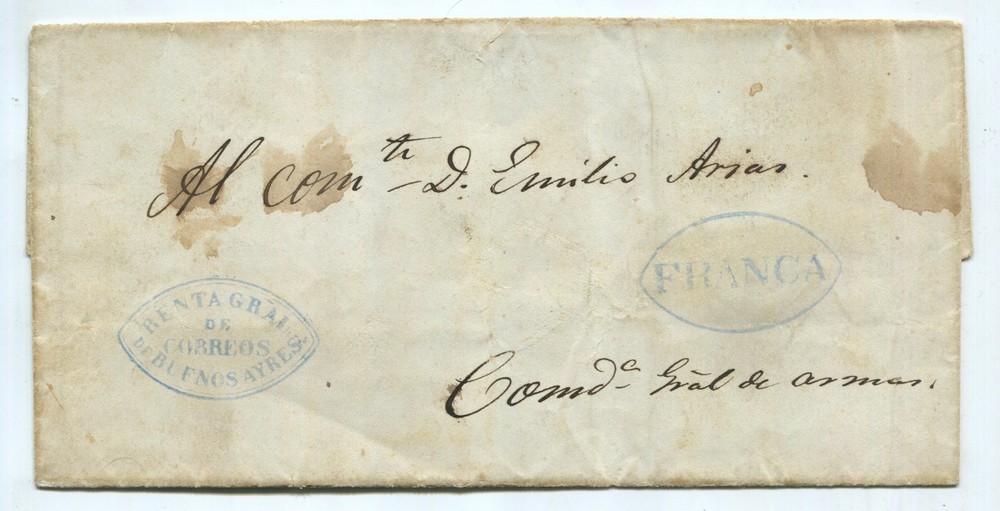 Al com^te D. Emilio Arias.
FRANCA
RENTA GRAL
DE
CORREOS
DE BUENOS AYRES
Comd^a Grāl de armas.